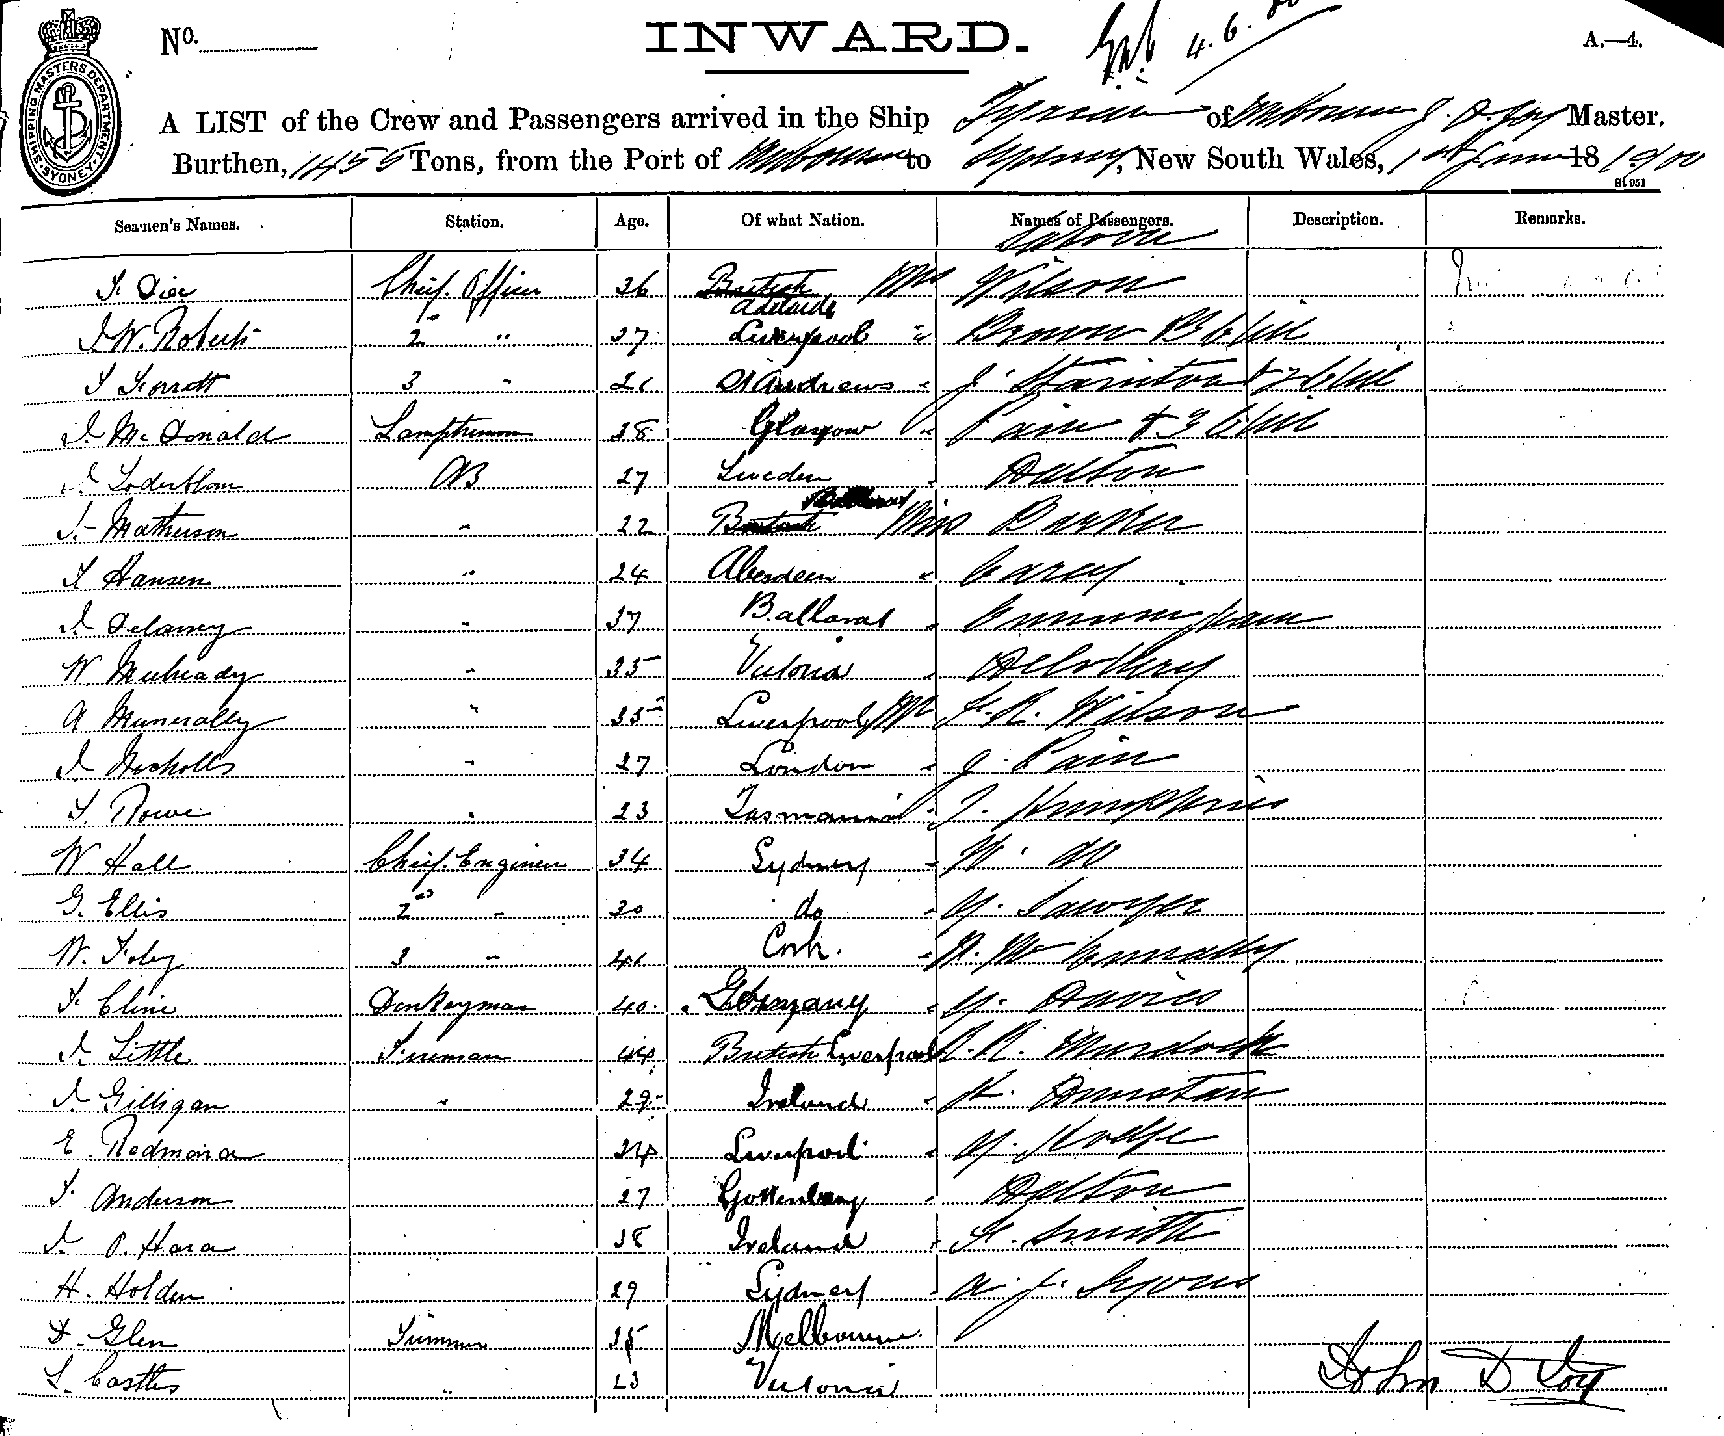 No. INWARD. 4.6.00 A.—4.
SHIPPING MASTERS DEPARTMENT SYDNEY
A LIST of the Crew and Passengers arrived in the Ship Tyrian of Melbourne J. D. Joy Master,
Burthen, 1455 Tons, from the Port of Melbourne to Sydney, New South Wales, 1st June 18 1900
St 951
Seamen's Names. Station. Age. Of what Nation. Names of Passengers. Description. Remarks.
Saloon
Chief Officer 36 British Mrs Wilson
Adelaide
J W. Roberts 2nd " 37 Liverpool " Brown
3 " 21 St Andrews " J. Stainton & 2 Chil
J. McDonald Lamptrimmer 38 Glasgow " Pain & 3 Chil
J. Soderblom AB 27 Sweden " Dalton
J. Matheson " 22 British Miss Barker
J Hansen " 24 Aberdeen " Carey
J. Delaney " 37 Ballarat " Cunningham
W. " 35 Victoria "
A " 35 Liverpool Mr F. R. Wilson
J. Nicholls " 27 London " J. Pain
S. Rowe " 23 Tasmania " J. Humphries
W Hall Chief Engineer 34 Sydney " W. do
G. Ellis 2nd " 30 do " Sawyer
W. Foley 3 " 41 Cork. " McConnally
J. Cline Donkeyman 40. Germany " Davies
J. Little Fireman 44 British Liverpool R. R. Murdock
J. Gilligan " 29 Ireland " H. Dunstan
E. Redmond 34 Liverpool " Hodge
J. Anderson 27 Gottenberg " Dalton
J. O. Hara 38 Ireland " F. Smith
H. Holden 29 Sydney " A. J. Lyons
D. Glen Trimmer 35 Melbourne.
S. Castles " 23 Victoria
John D Joy